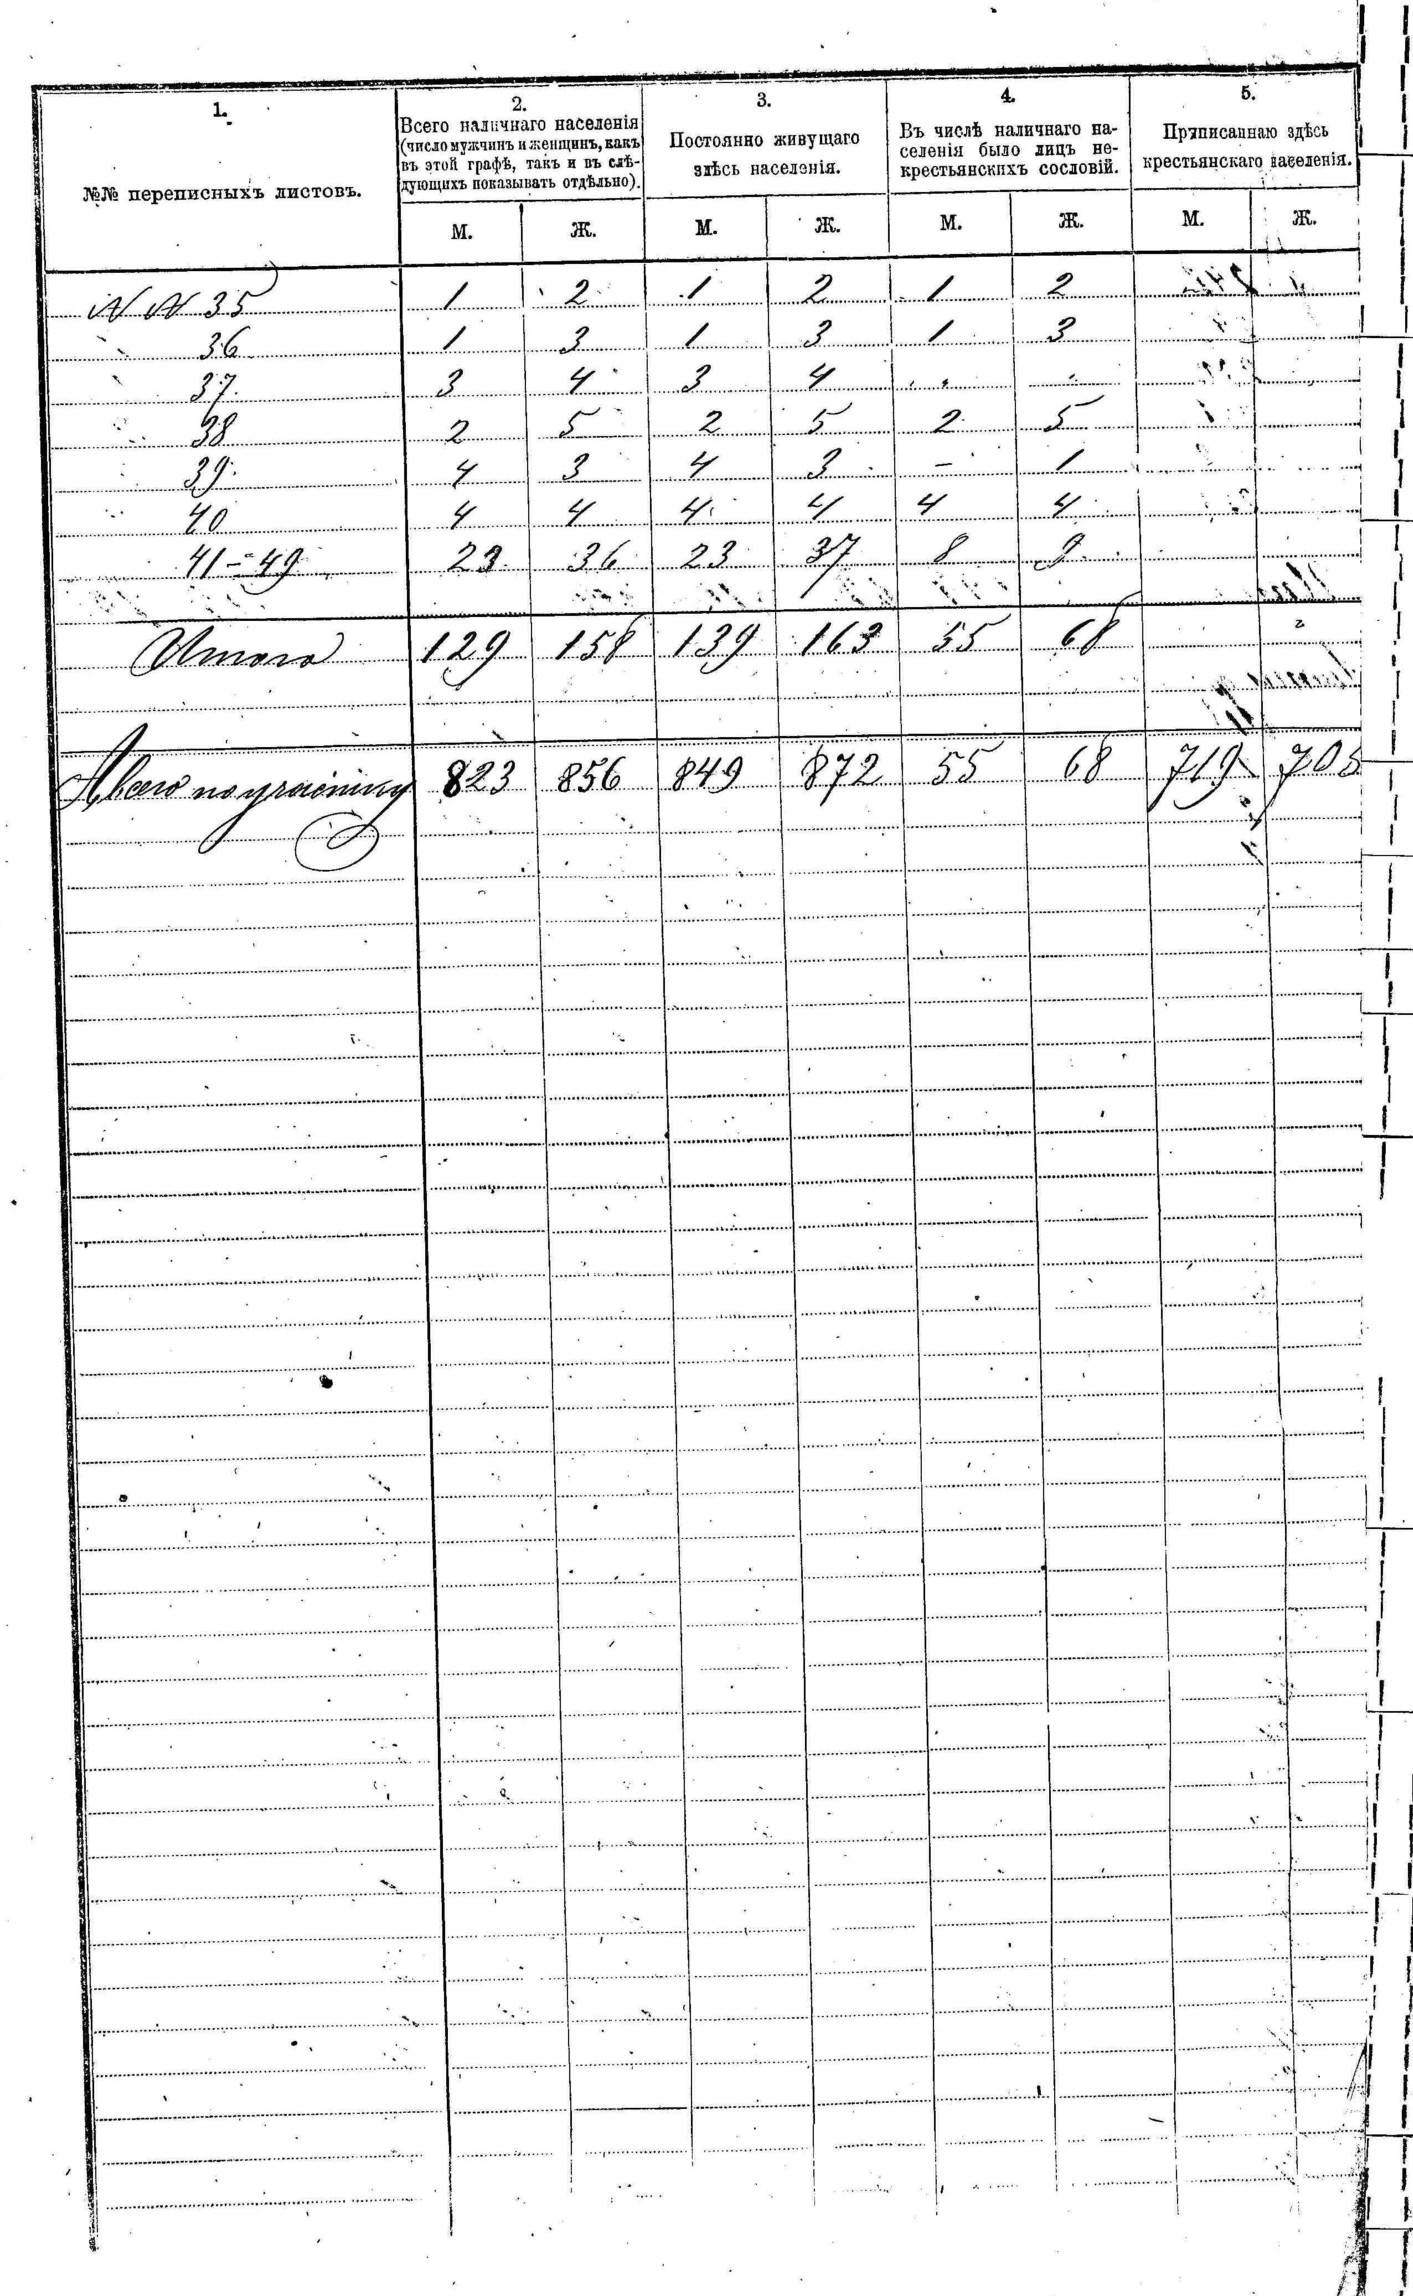 1. 2. 3. 4. 5.
№№ переписныхъ листовъ.
Всего наличнаго населенія
(число мужчинъ и женщинъ, какъ
въ этой графѣ, такъ и въ слѣ-
дующихъ показывать отдѣльно).
Постоянно живущаго
здѣсь населенія.
Въ числѣ наличнаго на-
селенія было лицъ не-
крестьянскихъ сословій.
Приписаннаю здѣсь
крестьянскаго населенія.
М. Ж. М. Ж. М. Ж. М. Ж.
N N 35 1 2 1 2 1 2
36 1 3 1 3 1 3
37. 3 4 3 4
38 2 5 2 5 2 5
39. 4 3 4 3 - 1
40 4 4 4 4 4 4
41-49 23 36 23 37 8 9
Итого 129 158 139 163 55 68
А всего по участку 823 856 849 872 55 68 719 705